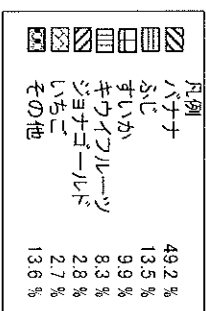 凡例
バナナ 49.2 %
ふじ 13.5 %
すいか 9.9 %
キウイフルーツ 8.3 %
ジョナゴールド 2.8 %
いちご 2.7 %
その他 13.6 %